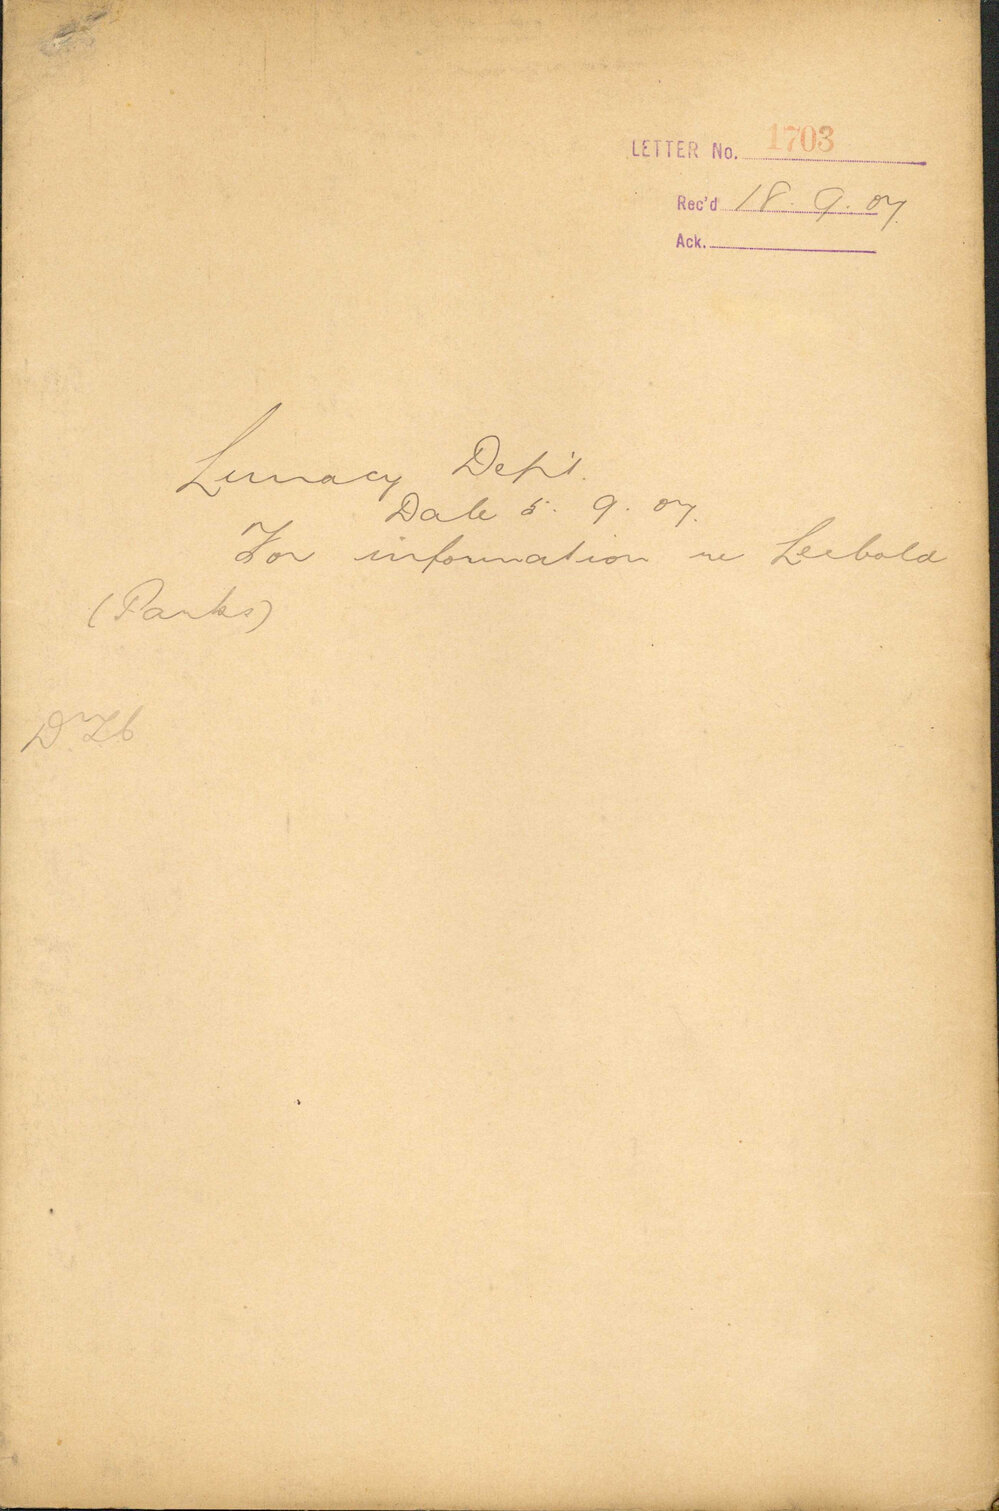 LETTER No. 1703
Rec'd 18. 9. 07.
Ack.
Lunacy Dep't.
Date 5. 9. 07.
For information re Leebold
(Parks)